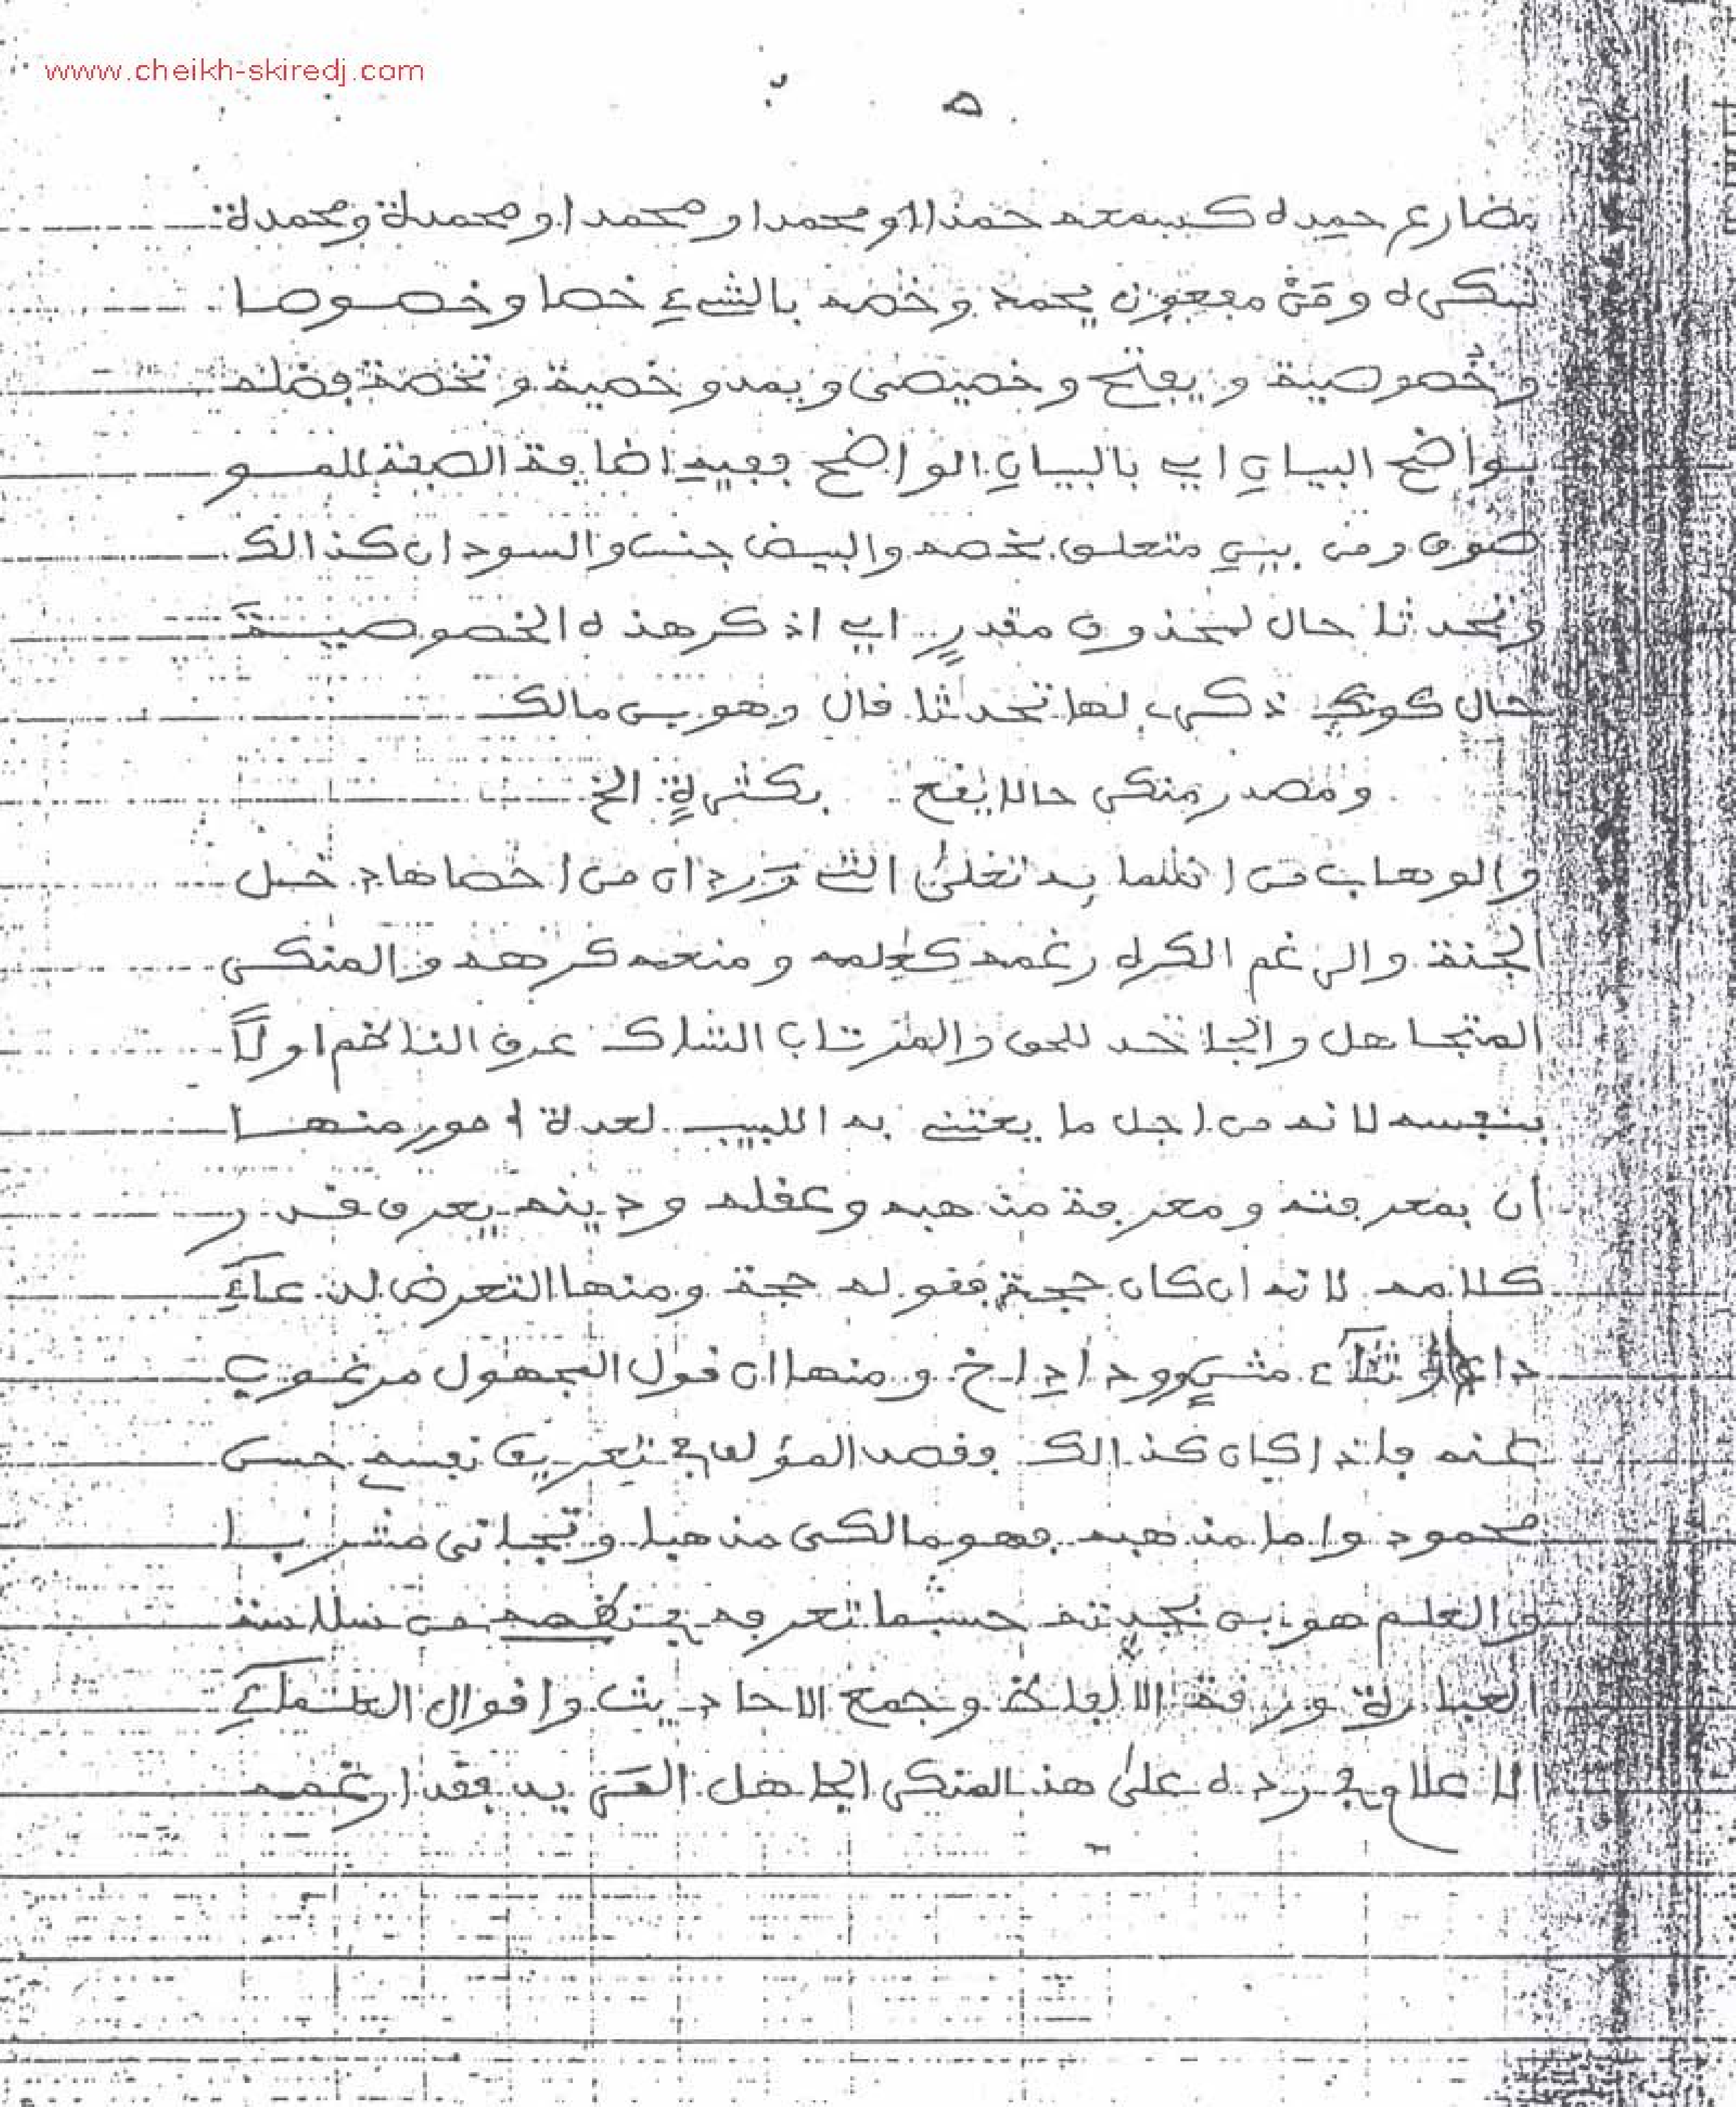 www.cheikh-skiredj.com
٥
مضارع حمده كسمعه حمدا ومحمدا ومحمدا ومحمدة ومحمدة
شكره ومن مفعول يحمد وخصه بالشيء خصا وخصوصا
وخصوصية ويفتح وخصيصى ويمد وخصية وتخصة فضله
بواضح البيان اي بالبيان الواضح ففيه اضافة الصفة للمو
صوف ومن بين متعلق بخصه والبيض جنس والسودان كذالك
وتحدثا حال لمحذوف مقدر اي اذكر هذه الخصوصية
حال كون ذكرى لها تحدثا قال وهو بن مالك
ومصدر منكر حالا يقع بكثرة الخ
والوهاب من اسمايه تعلى التي ورد ان من احصاها دخل
الجنة والرغم الكره رغمه كعلمه ومنعه كرهه والمنكر
المتجاهل والجاحد للحق والمرتاب الشاك عرف الناظم اولا
بنفسه لانه من اجل ما يعتني به اللبيب لعدة امور منها
ان بمعرفته ومعرفة مذهبه وعقله ودينه يعرف قدر
كلامه لانه ان كان حجة فقوله حجة ومنها التعرض لدعاء
داع او ثناء مثن ووداد اخ ومنها ان قول المجهول مرغوب
عنه فاذا كان كذالك فقصد المؤلف في تعريف نفسه حسن
محمود واما مذهبه فهو مالكي مذهبا وتجاني مشربا
والعلم هو بن بجدته حسبما تعرفه في نظمه من سلاسة
العبارة ورقة الالفاظ وجمع الاحاديث واقوال العلماء
الاعلام في رده على هذ المنكر الجاهل الغر يد فقد ارغمه